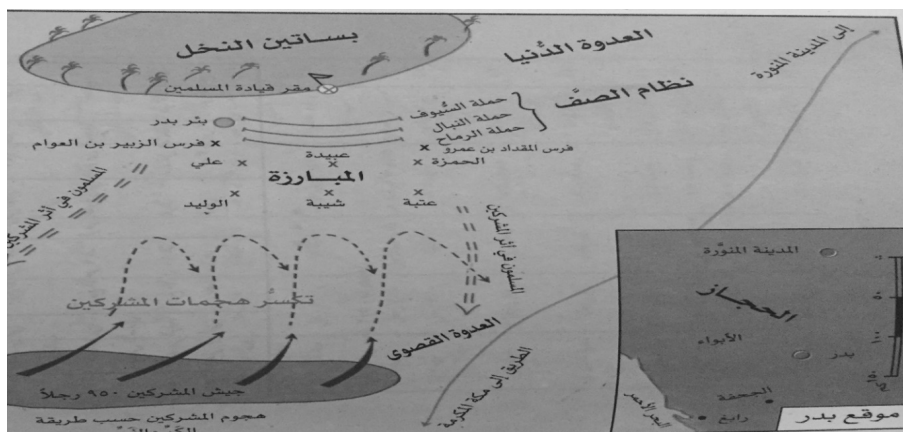 بساتين النخل
العدوة الدُنيا
إلى المدينة المنورة
مقر قيادة المسلمين
نظام الصفّ
حملة السُيوف
حملة النبال
حملة الرماح
بئر بدر
فرس الزبير بن العوام
فرس المقداد بن عمرو
علي
عبيدة
الحمزة
المبارزة
الوليد
شيبة
عتبة
المسلمون في اثر المشركين
المسلمون في اثر المشركين
تكسُّر هجمات المشركين
العدوة القصوى
الطريق إلى مكة المكرمة
جيش المشركين ٩٥٠ رجلاً
هجوم المشركين حسب طريقة
المدينة المنوّرة
الحجاز
الأبواء
بدر
الجحفة
رابغ
البحر الأحمر
موقع بدر